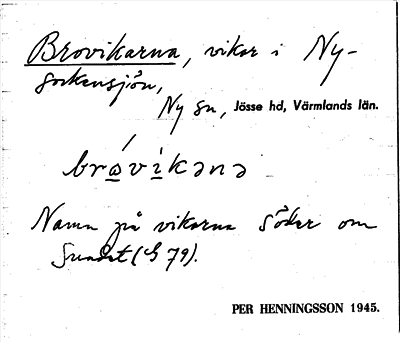 Brovikarna, vikar i Ny-
sockensjön,
Ny sn, Jösse hd, Värmlands län.
brávìkənə
Namn på vikarna söder om
Sundet (G 79).
PER HENNINGSSON 1945.